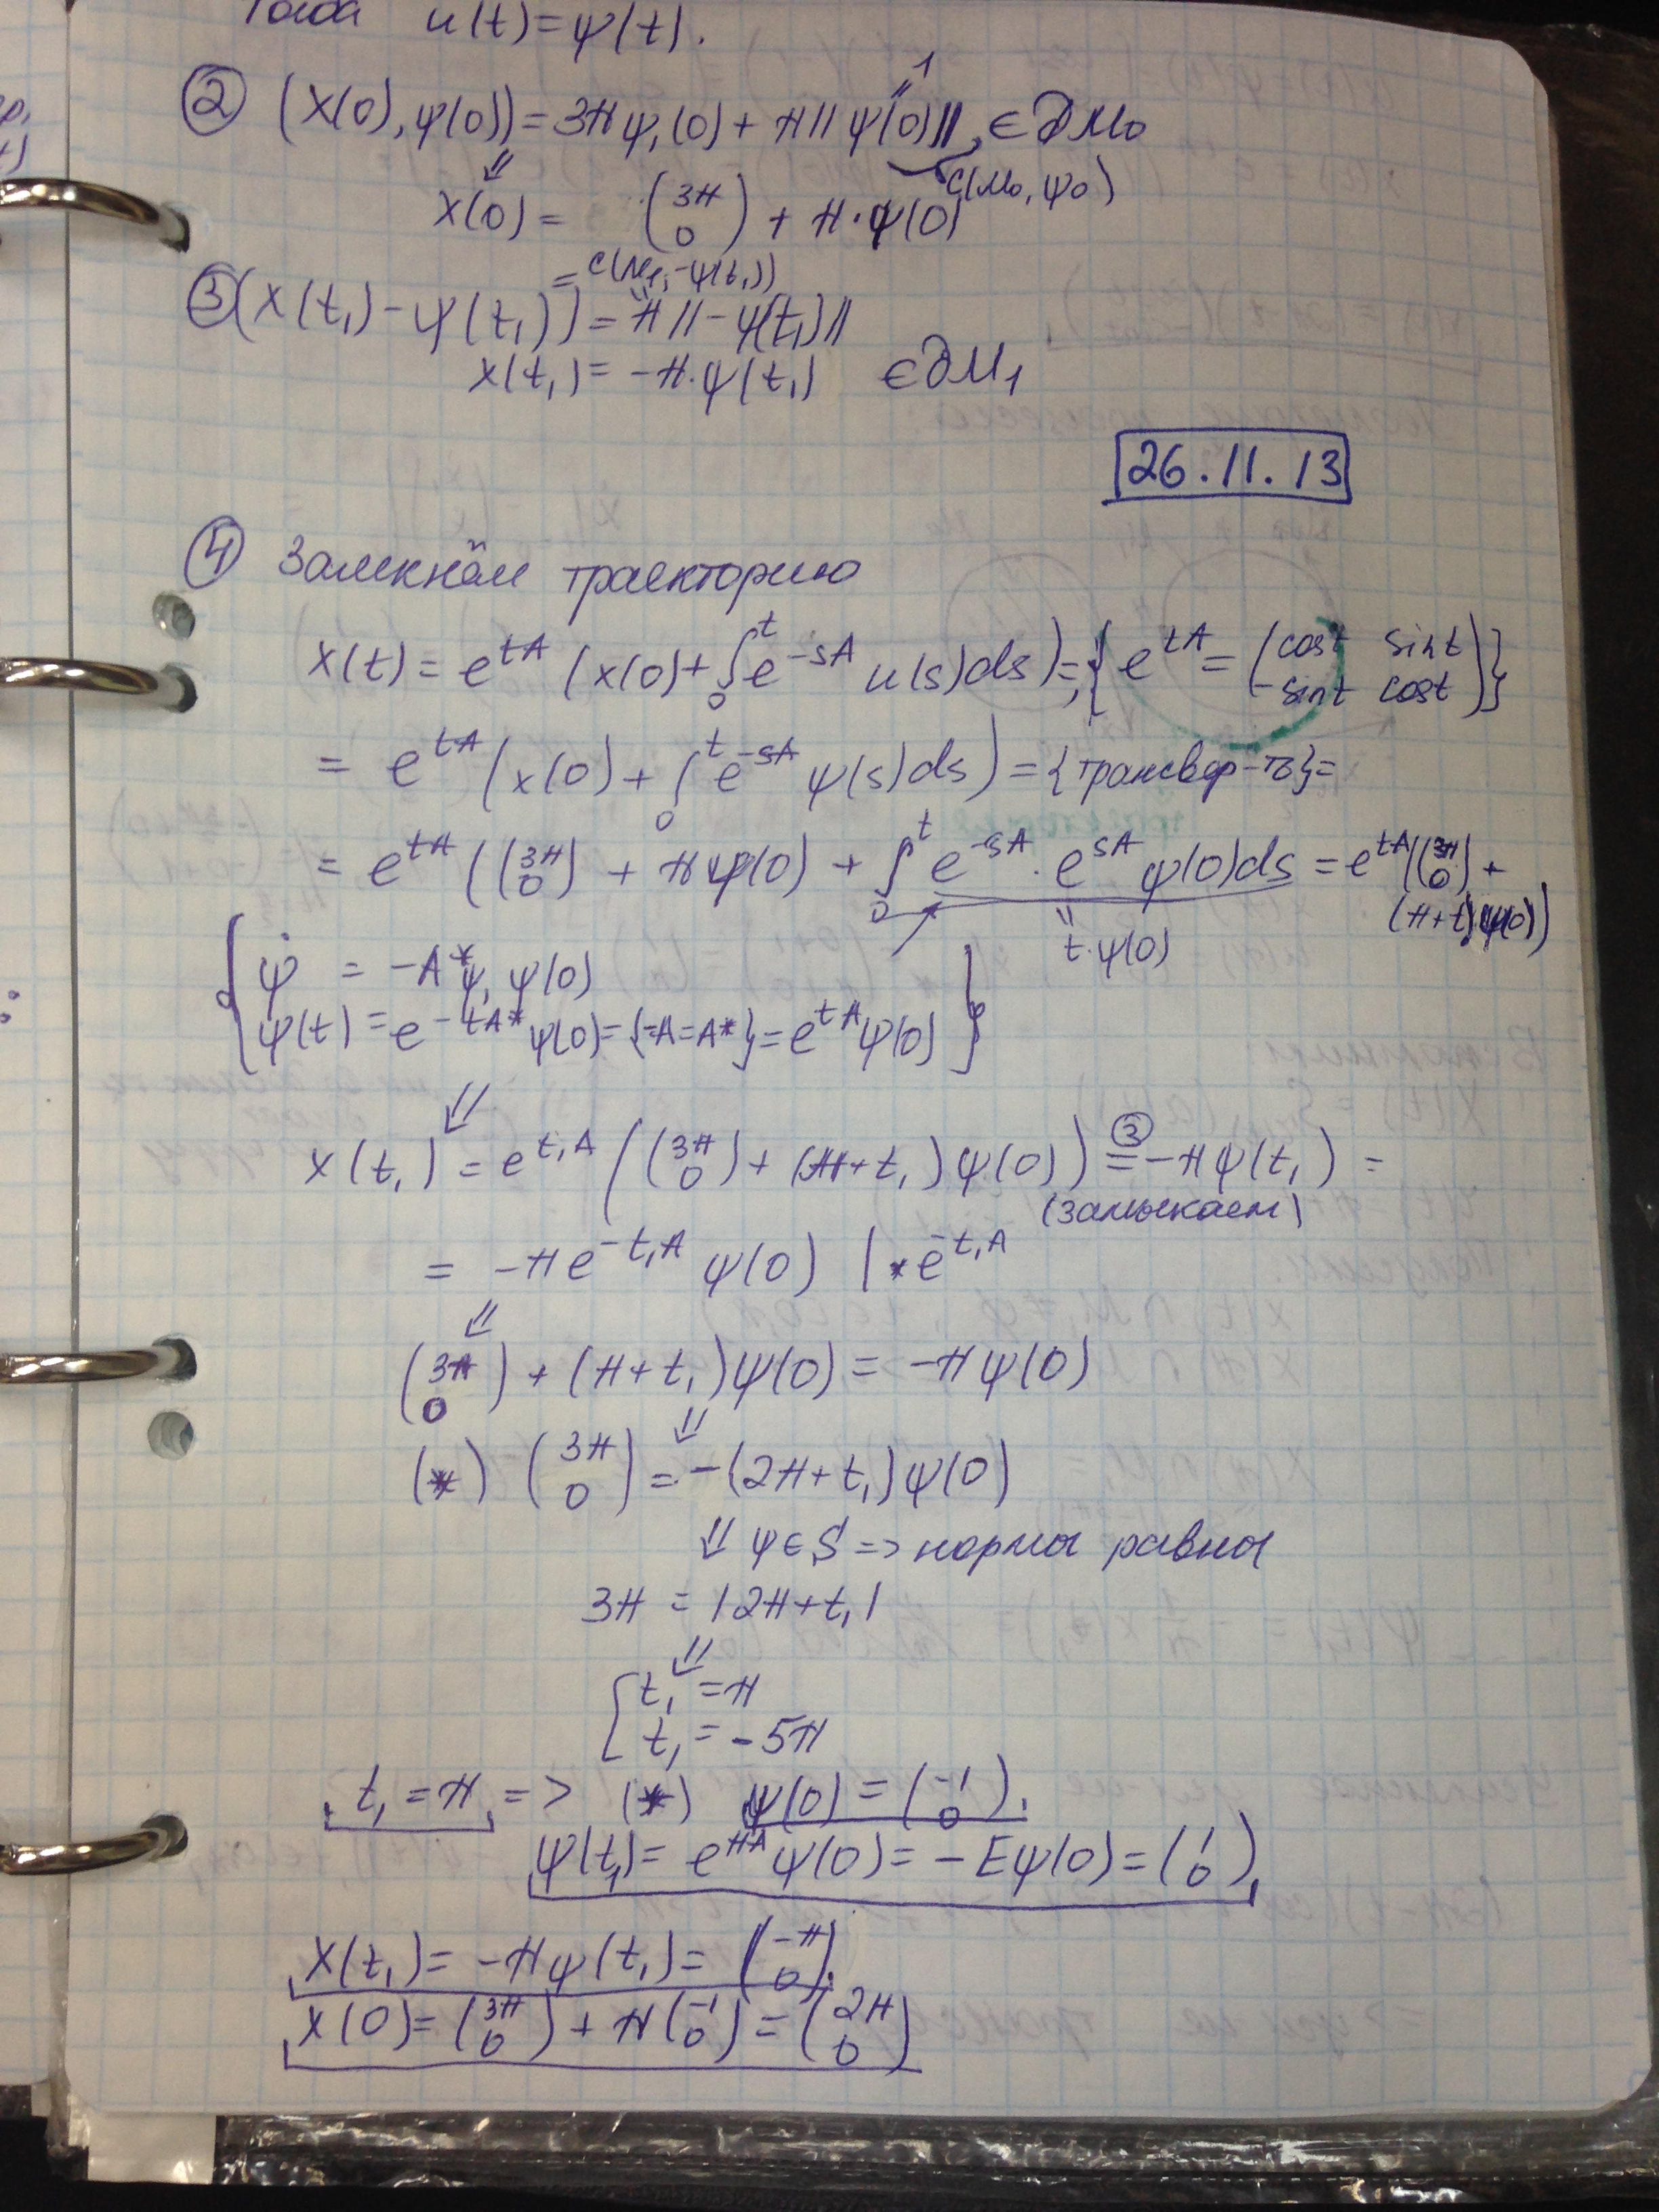 Тогда u(t)=ψ(t).
② (x(0), ψ(0)) = 3πψ₁(0) + π||ψ(0)||, ∈ ∂M₀
1
c(M₀, ψ₀)
x(0) = (3π 0) + π·ψ(0)
= c(M₁, -ψ(t₁))
③ (x(t₁) - ψ(t₁)) = π||-ψ(t₁)||
x(t₁) = -π·ψ(t₁) ∈ ∂M₁
26.11.13
④ Замкнём траекторию
x(t) = e^{tA} (x(0) + ∫₀ᵗ e^{-sA} u(s)ds) = { e^{tA} = (cost sint -sint cost) }
= e^{tA} (x(0) + ∫₀ᵗ e^{-sA} ψ(s)ds) = {трансвер-ть} =
= e^{tA} ((3π 0) + πψ(0) + ∫₀ᵗ e^{-sA} · e^{sA} ψ(0)ds = e^{tA}((3π 0) +
(π+t)ψ(0))
t·ψ(0)
ψ̇ = -A*ψ, ψ(0)
ψ(t) = e^{-tA*} ψ(0) = {-A=A*} = e^{tA} ψ(0)
⇓
x(t₁) = e^{t₁A} ((3π 0) + (π+t₁)ψ(0)) =③ -πψ(t₁) =
(замыкаем)
= -πe^{-t₁A} ψ(0) | * e^{-t₁A}
⇓
(3π 0) + (π+t₁)ψ(0) = -πψ(0)
⇓
(*) (3π 0) = -(2π+t₁)ψ(0)
⇓ ψ∈S => нормы равны
3π = |2π+t₁|
⇓
[ t₁ = π
t₁ = -5π
t₁ = π => (*) ψ(0) = (-1 0)
ψ(t₁) = e^{πA} ψ(0) = -Eψ(0) = (1 0)
x(t₁) = -πψ(t₁) = (-π 0)
x(0) = (3π 0) + π(-1 0) = (2π 0)